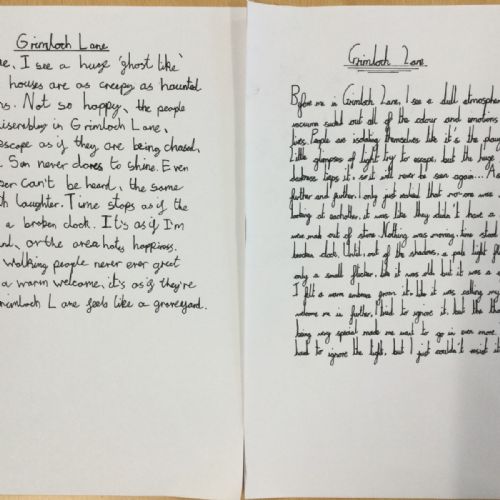 Grimloch Lane
me, I see a huge 'ghost like'
houses are as creepy as haunted
ns. Not so happy, the people
miserebley in Grimloch Lane,
escape as if they are being chased,
Sun never dares to shine. Even
can't be heard, the same
th laughter. Time stops as if the
a broken clock. It's as if I'm
nd, or the area hates happiness.
Walking people never ever greet
a warm welcome, it's as if they're
Grimloch Lane feels like a graveyard.
Grimloch Lane.
Before me in Grimloch Lane, I see a dull atmosphere
vacuum sucked out all of the colour and emotions
lives. People are isolating themselves like it's the plague
Little glimpses of light try to escape, but the huge
darkness traps it, so it will never be seen again... As
further and further, I only just realised that no-one was
looking at eachother, it was like they didn't have a
was made out of stone. Nothing was moving, time stood
broken clock. Until, out of the shadows, a pale light
only a small flicker, like it was old but it was a
I felt a warm embrace from it, like it was calling my
welcome me in further. I tried to ignore it, but the
being very special made me want to go in even more.
had to ignore the light, but I just couldn't resist it